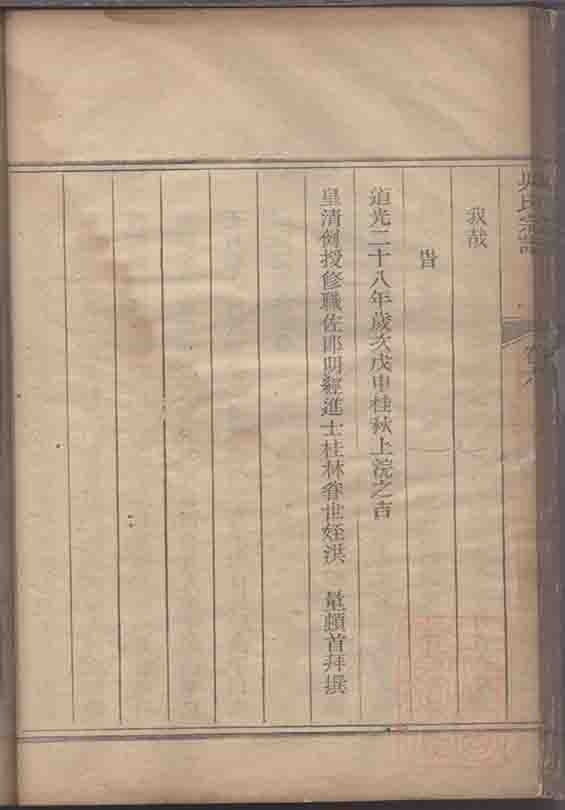 我哉
旹
道光二十八年歲次戊申桂秋上浣之吉
皇清例授修職佐郎明經進士桂林眷世姪洪 量頓首拜撰